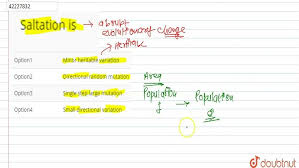 42227832
Saltation is → abrupt
evolutionary change
→ heritable
Option1 Minor heritable variation
Option2 Directional random mutation
Option3 Single step large mutation
Option4 Small directional variation
Population → Population
doubtnut